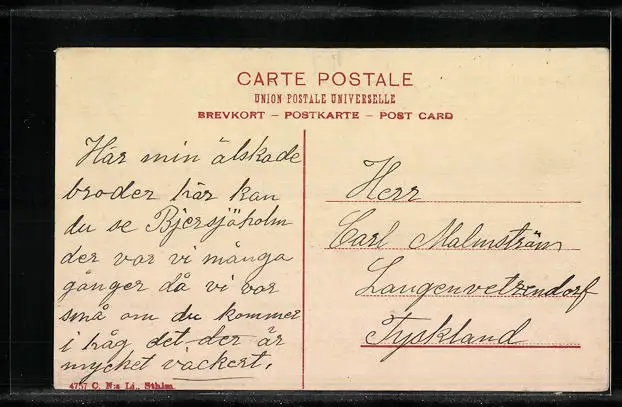 CARTE POSTALE
UNION POSTALE UNIVERSELLE
BREVKORT – POSTKARTE – POST CARD
Här min älskade
broder här kan
du se Bjersjöholm
der var vi många
gånger då vi var
små om du kommer
i håg det der är
mycket vackert.
4757 C. N:s Lj., Sthlm.
Herr
Carl Malmström
Langenvetzendorf
Tyskland